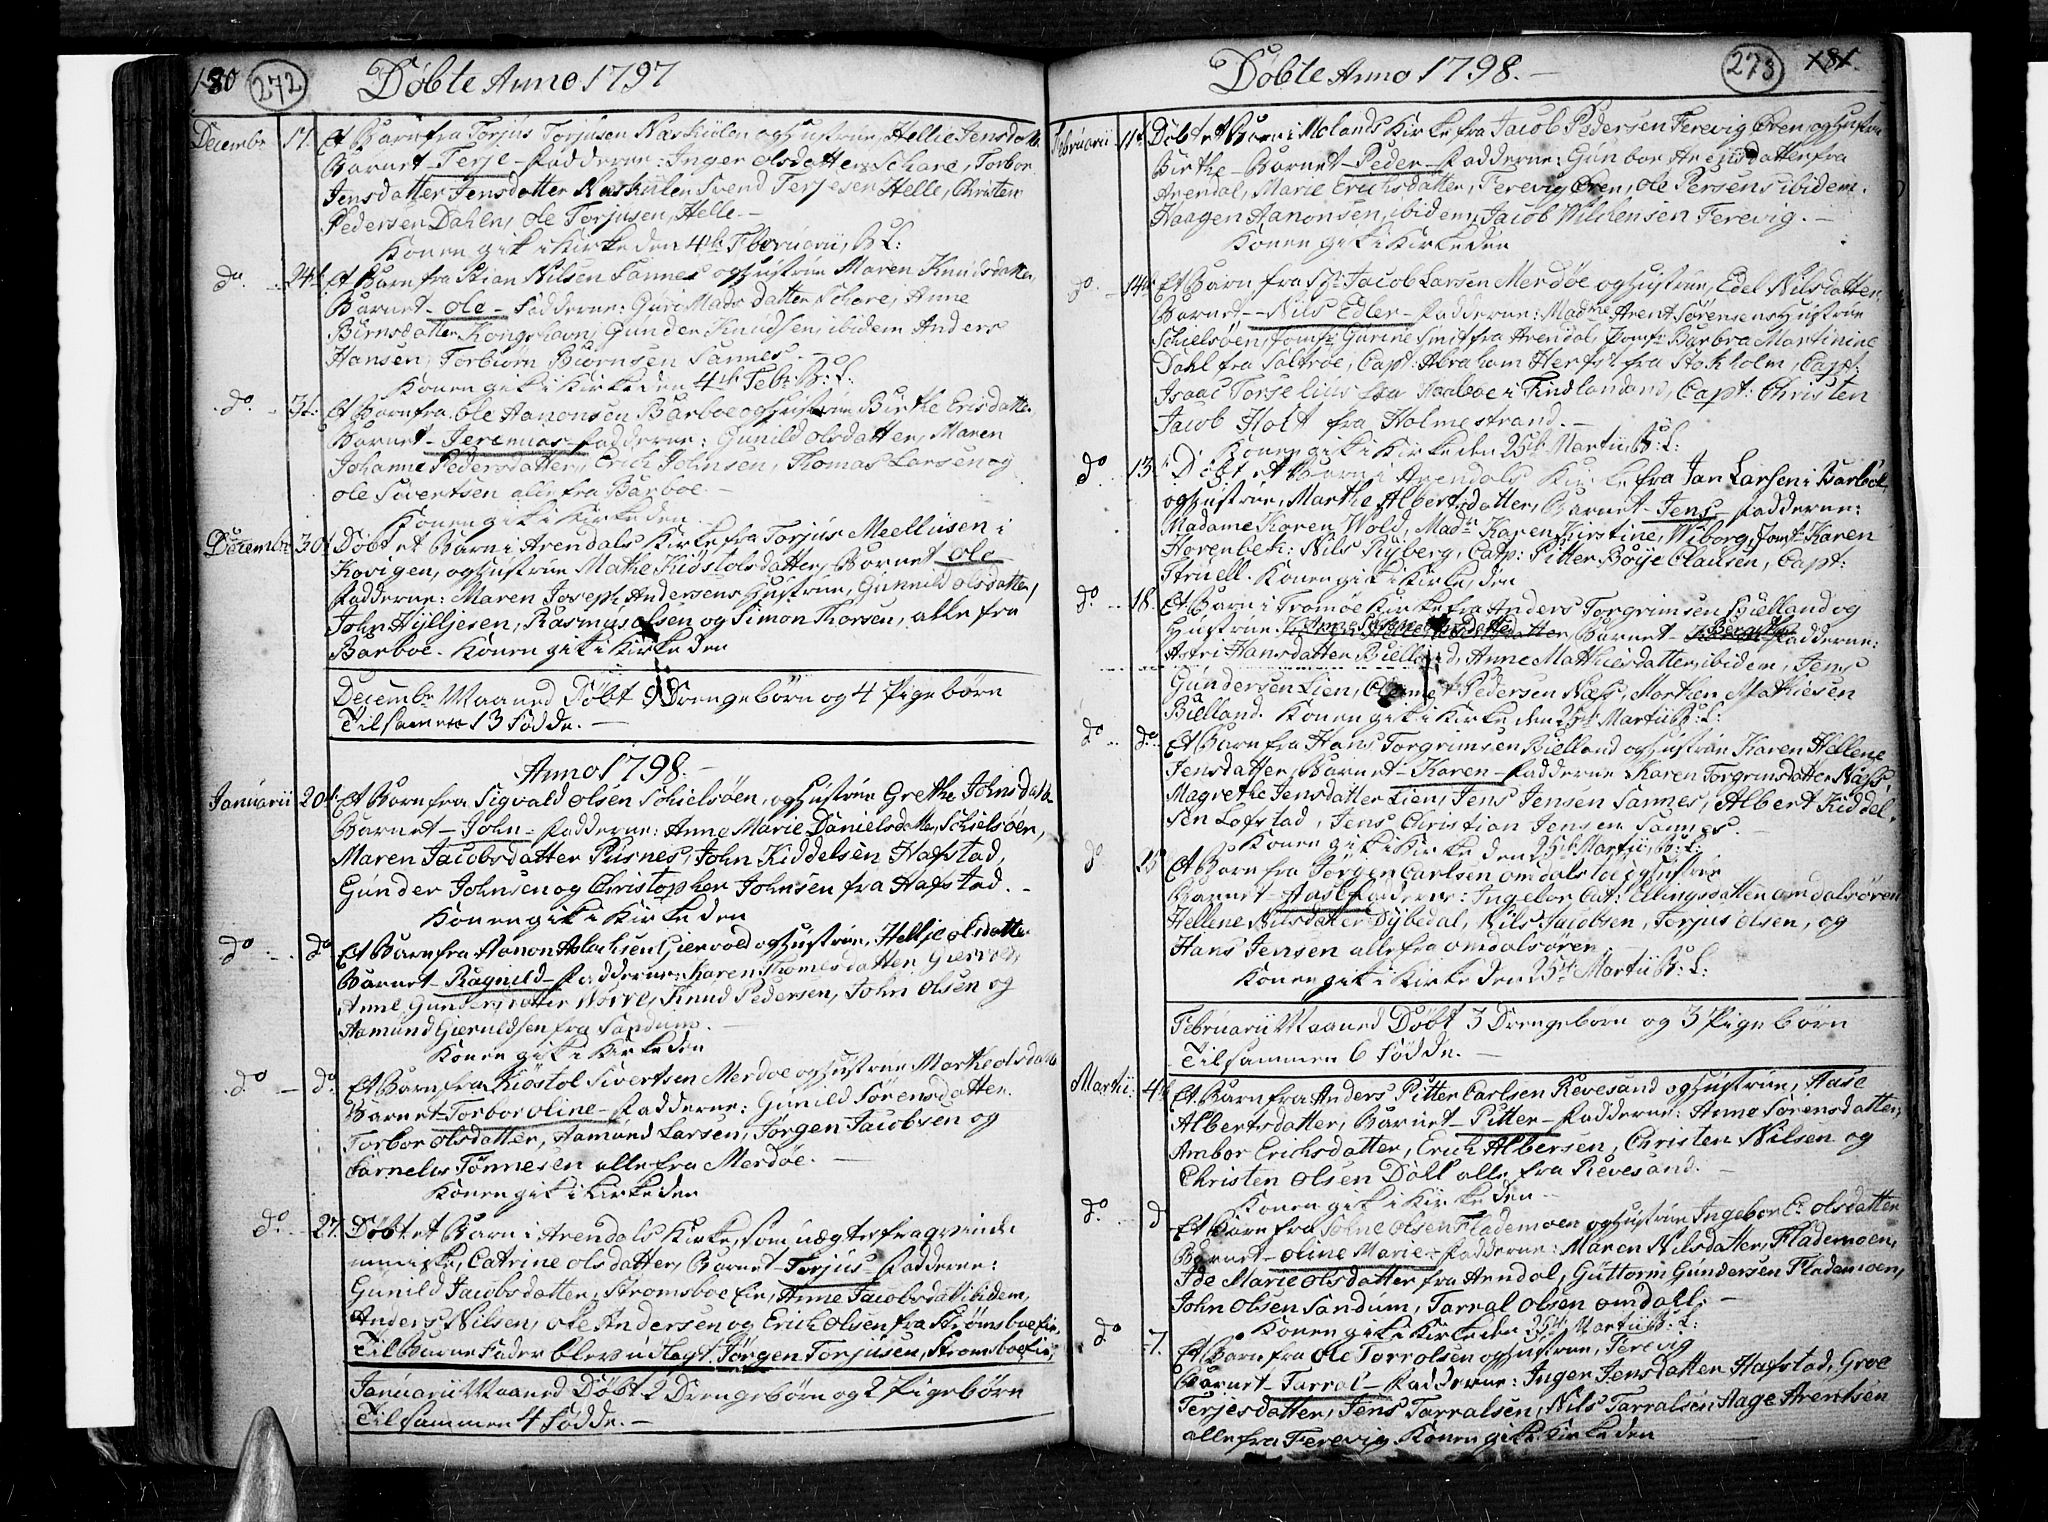 180 272 Döbte Anno 1797
Decembr 17. Et Barn fra Torjus Torjusen Naskilen og Hustrue, Hellie Jensdatter
Barnet - Terje - Fadderne: Inger Olsdatter Schare, Torbor
Jensdatter Jensdatter Naskilen Svend Terjesen Helle, Christen
Pedersen Dahlen, Ole Torjusen, Helle. -
Konen gik i Kirke den 4de Februarii, B: L:
do 24de Et Barn fra Stian Nilsen Sannes og Hustrue Maren Knudsdatter,
Barnet - Ole - Fadderne: Guri Madsdatter Schare, Anne
Birnsdatter Kongshavn, Gunder Knudsen, ibidem Anders
Hansen, Torbiørn Biørnsen Sannes. -
Konen gik i Kirke den 4de Febr: B: L:
do. 31. Et Barn fra Ole Aanonsen Barboe og Hustrue Birthe Erisdatter
Barnet - Jeremias - Fadderne: Gunild Olsdatter, Maren
Johanne Pedersdatter, Erich Johnsen, Thomas Larsen og
Ole Sivertsen alle fra Barboe. -
Konen gik i Kirke den
Decembr 30. Döbt et Barn i Arendals Kirke fra Torjus Meellusen i
Kovigen, og Hustrue Mathe Kidstolsdatter, Barnet Ole
Fadderne: Maren Joseph Andersens Hustrue, Gunnild Olsdatter,
John Hylljesen, Rasmus Olsen og Simon Thorsen, alle fra
Barboe. Konen gik i Kirke den
Decembr Maaned Döbt 9 Drengebörn og 4 Pigebörn
Tilsammen 13 Födde. -
Anno 1798. -
Januarii 20de Et Barn fra Sigvald Olsen Schielsöen, og Hustrue Grethe Johnsdatter
Barnet - John - Fadderne: Anne Marie Danielsdatter, Schielsöen,
Maren Jacobsdatter Pusnes, John Kiddelsen Hafstad,
Gunder Johnsen og Christopher Johnsen fra Hafstad. -
Konen gik i Kirke den
do do Et Barn fra Aanon Aslachsen Giervold og Hustrue, Hellje Olsdatter
Barnet - Ragnild - Fadderne: Karen Thomesdatter Giervold,
Anne Gundersdatter Norre, Knud Pedersen, John Olsen og
Aamund Gieruldsen fra Sandum. -
Konen gik i Kirke den
do do. Et Barn fra Kiöstol Sivertsen Merdöe og Hustrue Marthe Olsdatter
Barnet - Torbor Oline - Fadderne: Gunild Sörensdatter
Torbor Olsdatter, Aamund Larsen, Jörgen Jacobsen og
Cornelus Tönnesen alle fra Merdöe. -
Konen gik i Kirke den
do. 27. Döbt et Barn i Arendals Kirke, som uægte fra qvinde
menniske, Catrine Olsdatter, Barnet - Torjus - Fadderne:
Gunild Jacobsdatter, Strömsboe Eie, Anne Jacobsdatt ibidem,
Anders Nilsen, Ole Andersen og Erich Olsen fra Strömsboe Eie,
Til Barne Fader blev udlagt Jörgen Torjusen, Strömsboe Eie,
Januarii Maaned Döbt 2 Drengebörn og 2 Pigebörn
Tilsammen 4 Födde. -
Döbte Anno 1798. - 273 181
Februarii 11te Döbt et Barn i Molands Kirke fra Jacob Pedersen Ferevig Ören, og Hustrue
Birthe - Barnet - Peder - Fadderne: Gunbor Arensdatter fra
Arendal, Marie Erichsdatter, Ferevig Ören, Ole Persens ibidem.
Haagen Aanonsen, ibidem, Jacob Wilchensen Ferevig. -
Konen gik i Kirke den
do. 14de Et Barn fra Jacob Larsen Merdöe og Hustrue, Edel Nilsdatter,
Barnet - Nils Edler - Fadderne: Madme Arent Sörensens Hustrue
Schielsöen, Jomf: Gurine Smit fra Arendal, Jomf: Barbra Martinine
Dahl fra Saltröe, Capt: Abraham Herfst fra Stokholm, Capt:
Isaac Torselius fra i Findlaland, Capt: Christen
Jacob Holt fra Holmestrand. -
Konen gik i Kirke den 25de Martii B: L:
do 13. Döbt et Barn i Arendals Kirke fra Jan Larsen i Barboe,
og Hustrue, Marthe Albertsdatter, Barnet - Jens - Fadderne:
Madame Karen Wold, Madme Karen Kirstine, Wiborg, Jomf: Karen
Horenbek: Nils Ryberg, Catp: Pitter Böye Clausen, Capt:
Struell. Konen gik i Kirke, den
do. 18. Et Barn i Tromöe Kirke fra Anders Torgrimsen Bielland og
Hustrue Barnet - Fadderne:
Astri Hansdatter, Bielland, Anne Mathiesdatter, ibidem, Jens
Gundersen Lien, Clemet Pedersen Næs, Morthen Mathiesen
Bielland. Konen gik i Kirke den 25de Martii B: L:
do do. Et Barn fra Hans Torgrimsen Bielland og Hustrue Karen Hellene
Jensdatter, Barnet - Karen - Fadderne Karen Torgrimsdatter Næss,
Magrethe Jensdatter Lien, Jens Jensen Sannes, Albert Kiddel-
sen Lofstad, Jens Christian Jensen Sannes. -
Konen gik i Kirke den 25de Martii, B: L:
do 25 Et Barn fra Jörgen Carlsen Omdalstoe og Hustrue
Barnet - Aase - Fadderne: Ingebor Cat: Ellingsdatter Omdalsören
Hellene Nilsdatter Dybedal, Nils Jacobsen, Torjus Olsen, og
Hans Jensen alle fra Omdalsören. -
Konen gik i Kirke den 25de Martii B: L:
Februarii Maaned Döbt 3 Drengebörn og 3 Pigebörn
Tilsammen 6 Födde. -
Martii: 4de Et Barn fra Anders Pitter Carlsen Revesand og Hustrue, Aase
Albertsdatter, Barnet - Pitter - Fadderne: Anne Sörensdatter,
Ambor Erichsdatter, Erich Albersen, Christen Nilsen og
Christen Olsen Döll alle fra Revesand. -
Konen gik i Kirke den -
do. d Et Barn fra Sohne Olsen Flademoen og Hustrue Ingebor C: Olsdatter
Barnet - Oline Marie - Fadderne: Maren Nilsdatter, Flademoen,
Ide Marie Olsdatter fra Arndal, Guttorm Gundersen Flademoen,
John Olsen Sandum, Tarral Olsen Omdall. -
Konen gik i Kirke den 25de Martii B: L:
do 7. Et Barn fra Ole Torrolsen og Hustrue, Ferevig
Barnet - Tarral - Fadderne: Inger Jensdatter Hafstad, Groe
Terjesdatter, Jens Tarralsen, Nils Tarralsen Aage Arentsen
alle fra Ferevig Konen gik i Kirke den